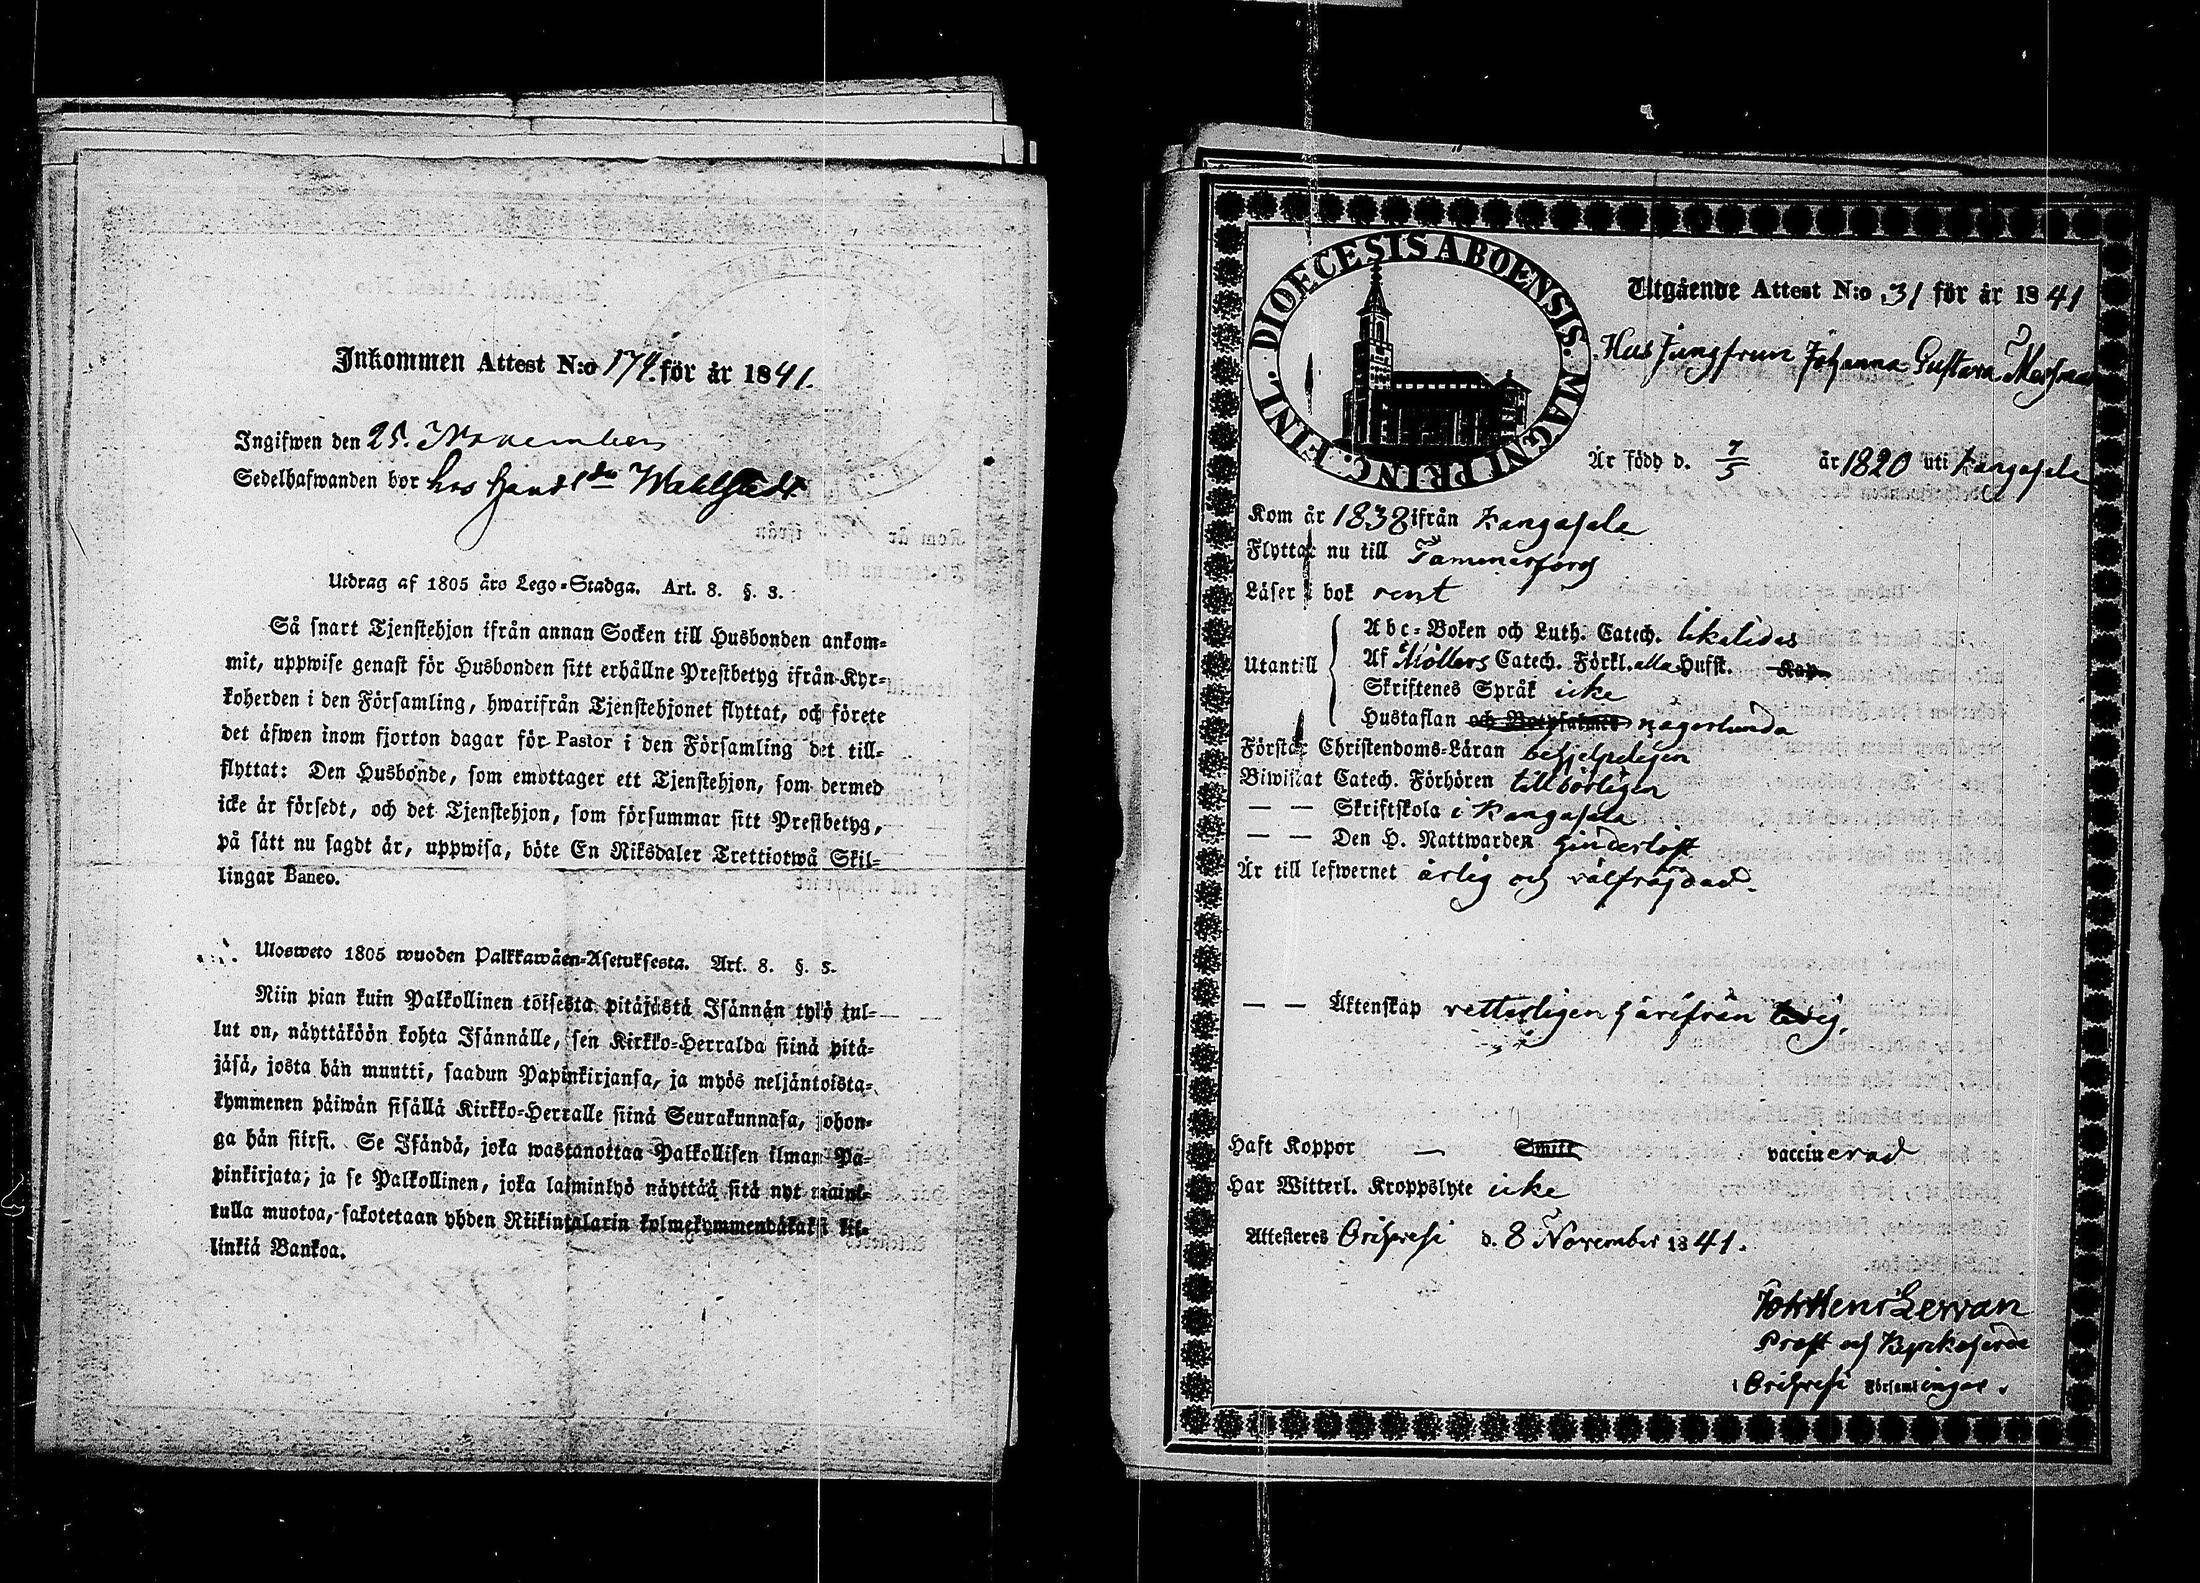 Inkommen Attest N:o 174. för år 1841.
Ingifwen den 25. November
Sedelhafwanden bor hos Handl:den Wahlstedt
Utdrag af 1805 års Lego=Stadga. Art. 8. §. 3.
Så snart Tjenstehjon ifrån annan Socken till Husbonden ankom=
mit, uppwise genast för Husbonden sitt erhållne Prestbetyg ifrån Kyr=
koherden i den Församling, hwarifrån Tjenstehjonet flyttat, och förete
det äfwen inom fjorton dagar för Pastor i den Församling det till=
flyttat: Den Husbonde, som emottager ett Tjenstehjon, som dermed
icke är försedt, och det Tjenstehjon, som försummar sitt Prestbetyg,
på sätt nu sagdt är, uppwisa, böte En Riksdaler Trettiotwå Skil=
lingar Banco.
Ulosweto 1805 wuoden Palkkawäen=Asetuksesta. Art. 8. §. 3.
Niin pian kuin Palkollinen toisesta pitäjästä Isännän tylö tul=
lut on, näyttäköön kohta Isännälle, sen Kirkko=Herralda siinä pitä=
jäsä, josta hän muutti, saadun Papinkirjansa, ja myös neljäntoista=
kymmenen päiwän sisällä Kirkko=Herralle siinä Seurakunnasa, johon=
ga hän siirsi. Se Isändä, joka wastanottaa Palkollisen ilman Pa=
pinkirjata; ja se Palkollinen, joka laiminlyö näyttää sitä nyt maini=
tulla muotoa, sakotetaan yhden Riikintalarin kolmekymmendäkaksi kil=
linkiä Bankoa.
DIOECESIS ABOENSIS. MAGNI PRINC. FINL.
Utgående Attest N:o 31 för år 1841
Hus Jungfrun Johanna Gustava
Är född d. 7/5 år 1820 uti Kangasala
Kom år 1838 ifrån Kangasala
Flyttar nu till Tammerfors
Läser i bok rent
Utantill
Abc=Boken och Luth. Catech. likaledes
Af Möllers Catech. Förkl. alla Hufst. Kap.
Skriftenes Språk icke
Hustaflan och Botpsalmer någorlunda
Förstår Christendoms=Läran behjelpeligen
Biwistat Catech. Förhören tillbörligen
— — Skriftskola i Kangasala
— — Den H. Nattwarden hinderlöst
Är till lefwernet ärlig och välfräjdad.
— — Äktenskap vetterligen härifrån ledig.
Haft Koppor — Smitt vaccinerad
Har Witterl. Kroppslyte icke
Attesteres Orihvesi d. 8 November 1841.
Joh Henr Lewan
Prost och Kyrkoherde
i Orihvesi Församlingar.